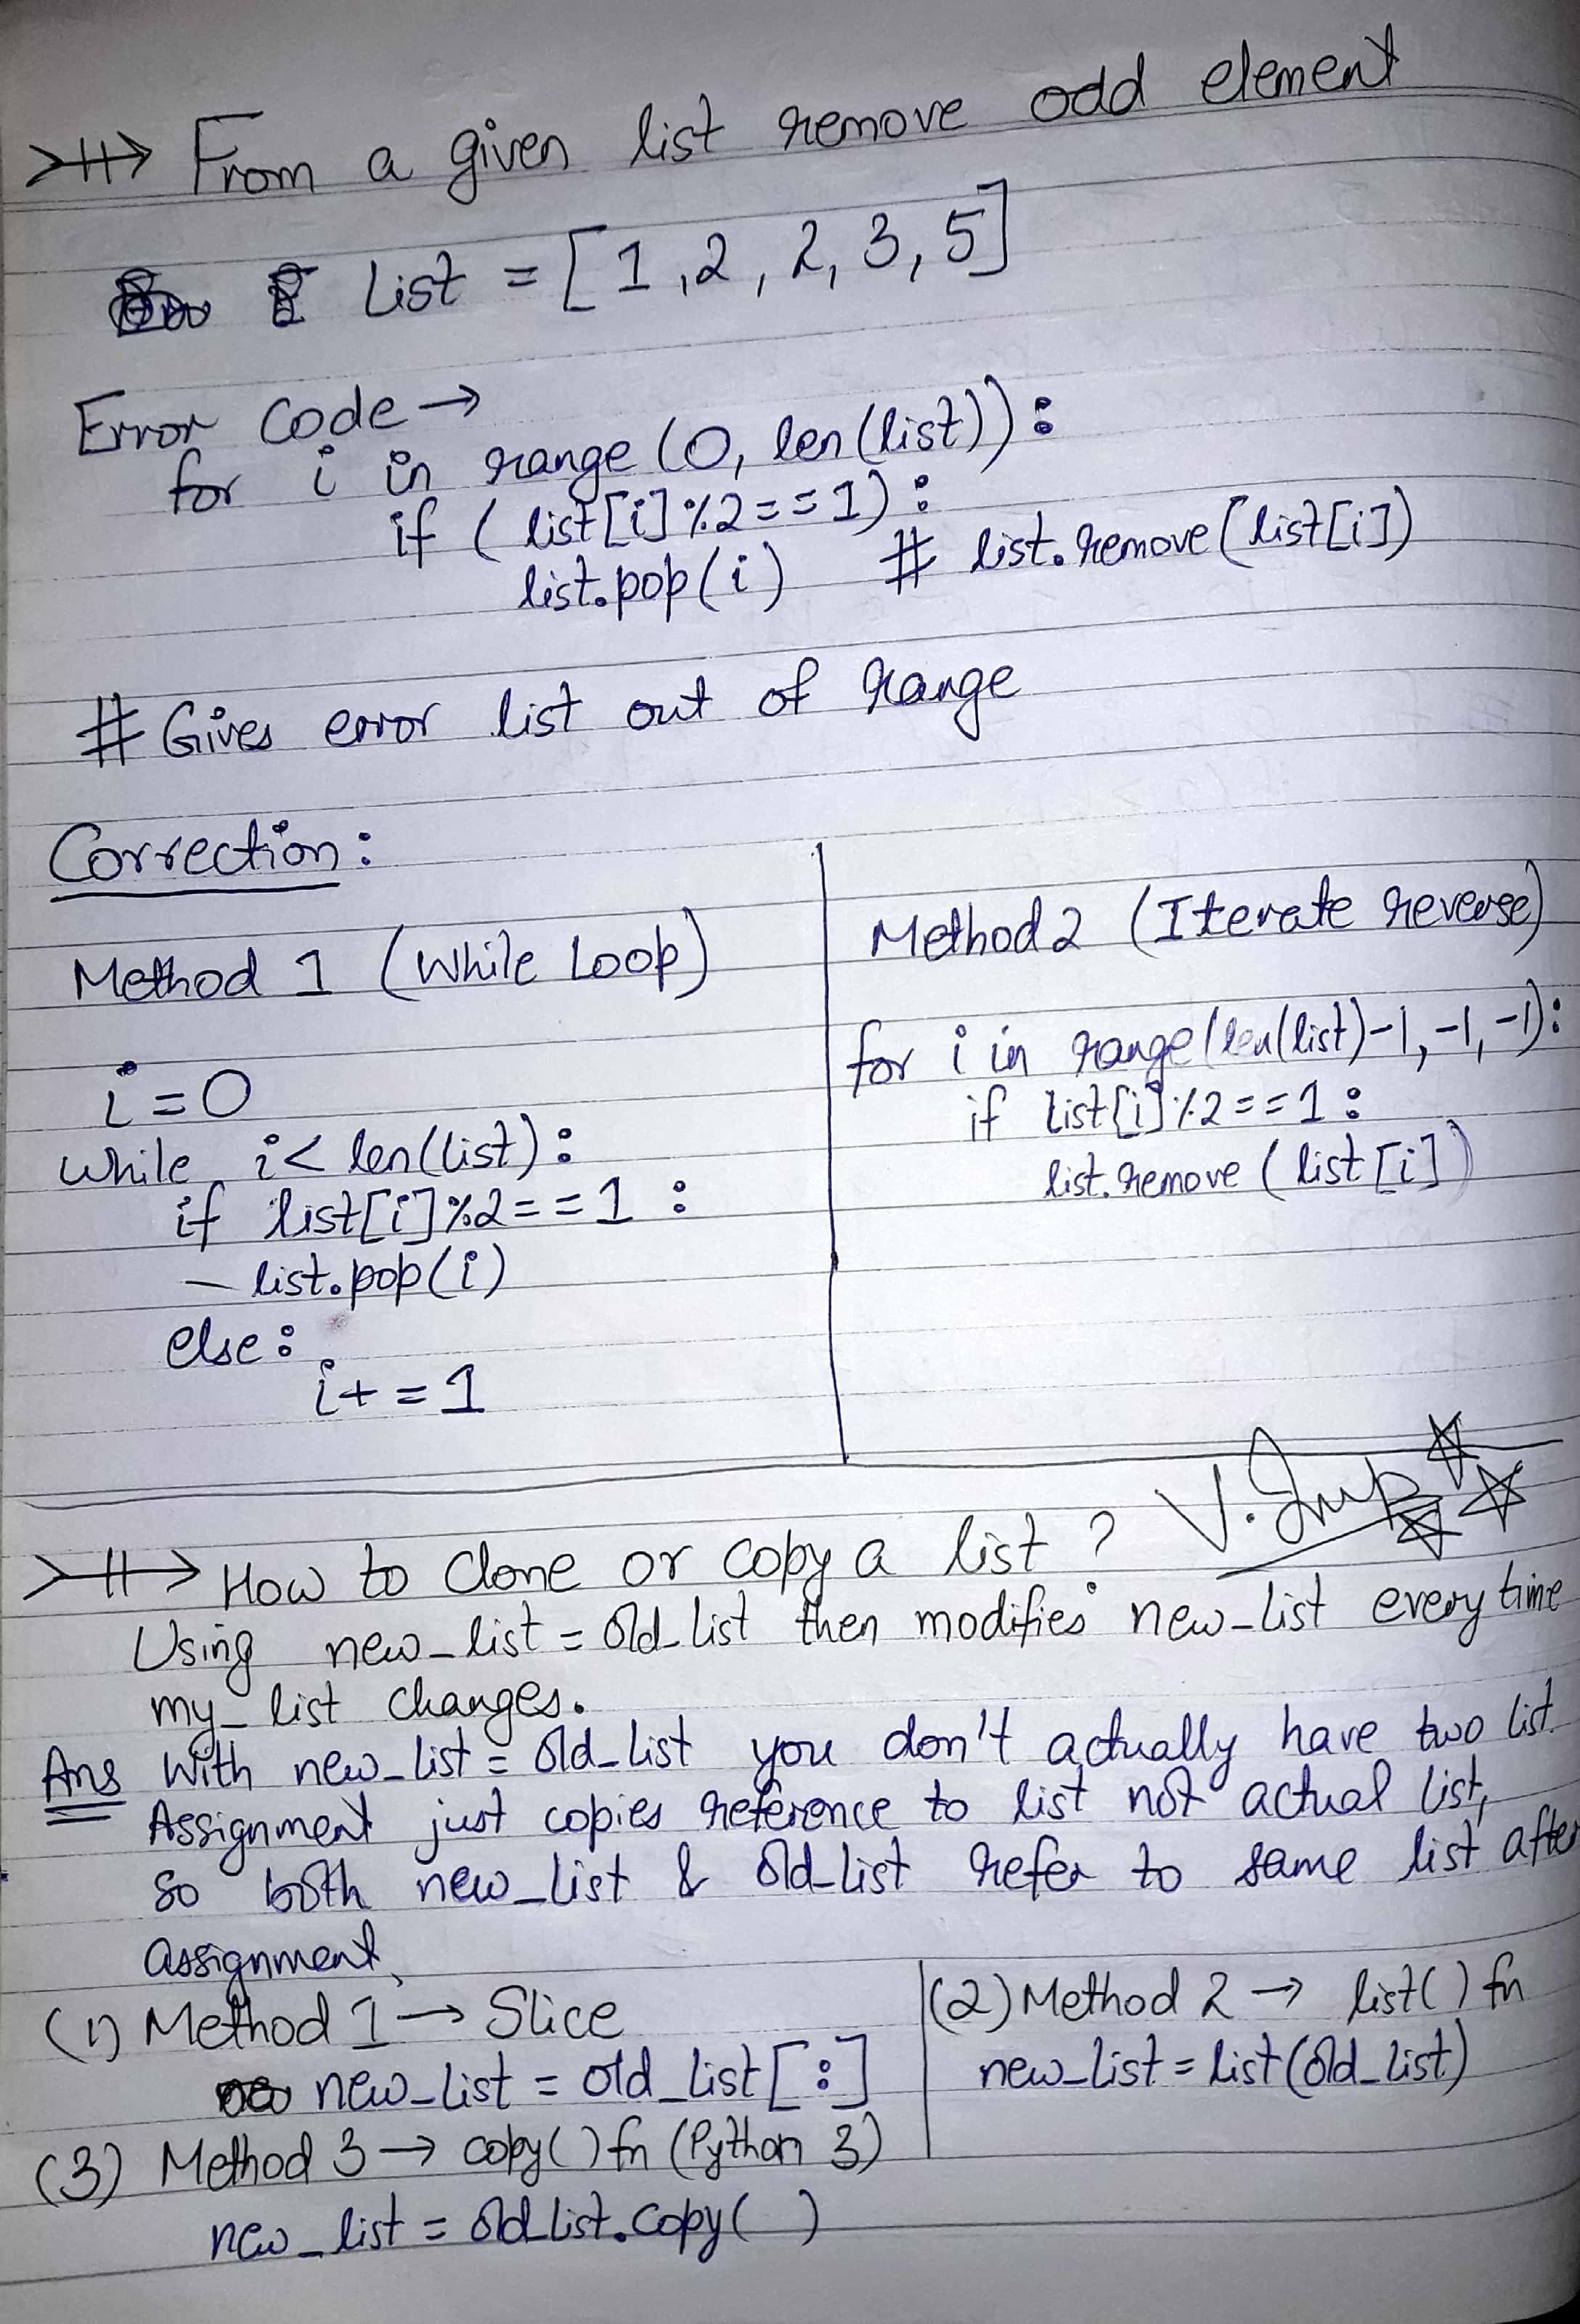 From a given list remove odd element
List = [1,2,2,3,5]
Error Code →
for i in range (0, len(list)):
if ( list[i]%2==1):
list.pop(i) # list.remove(list[i])
# Gives error list out of range
Correction:
Method 1 (While Loop)
i=0
while i< len(list):
if list[i]%2==1 :
— list.pop(i)
else:
i+=1
Method 2 (Iterate reverse)
for i in range(len(list)-1,-1,-1):
if list[i]%2==1:
list.remove ( list[i])
V.Imp
How to Clone or copy a list ?
Using new_list = old_list then modifies new_list every time
my_list changes.
Ans With new_list = old_list you don't actually have two list.
Assignment just copies reference to list not actual list,
so both new_list & old_list refer to same list after
assignment,
(1) Method 1 → Slice
new_list = old_list[:]
(2) Method 2 → list() fn
new_list = list(old_list)
(3) Method 3 → copy() fn (Python 3)
new_list = old_list.copy( )